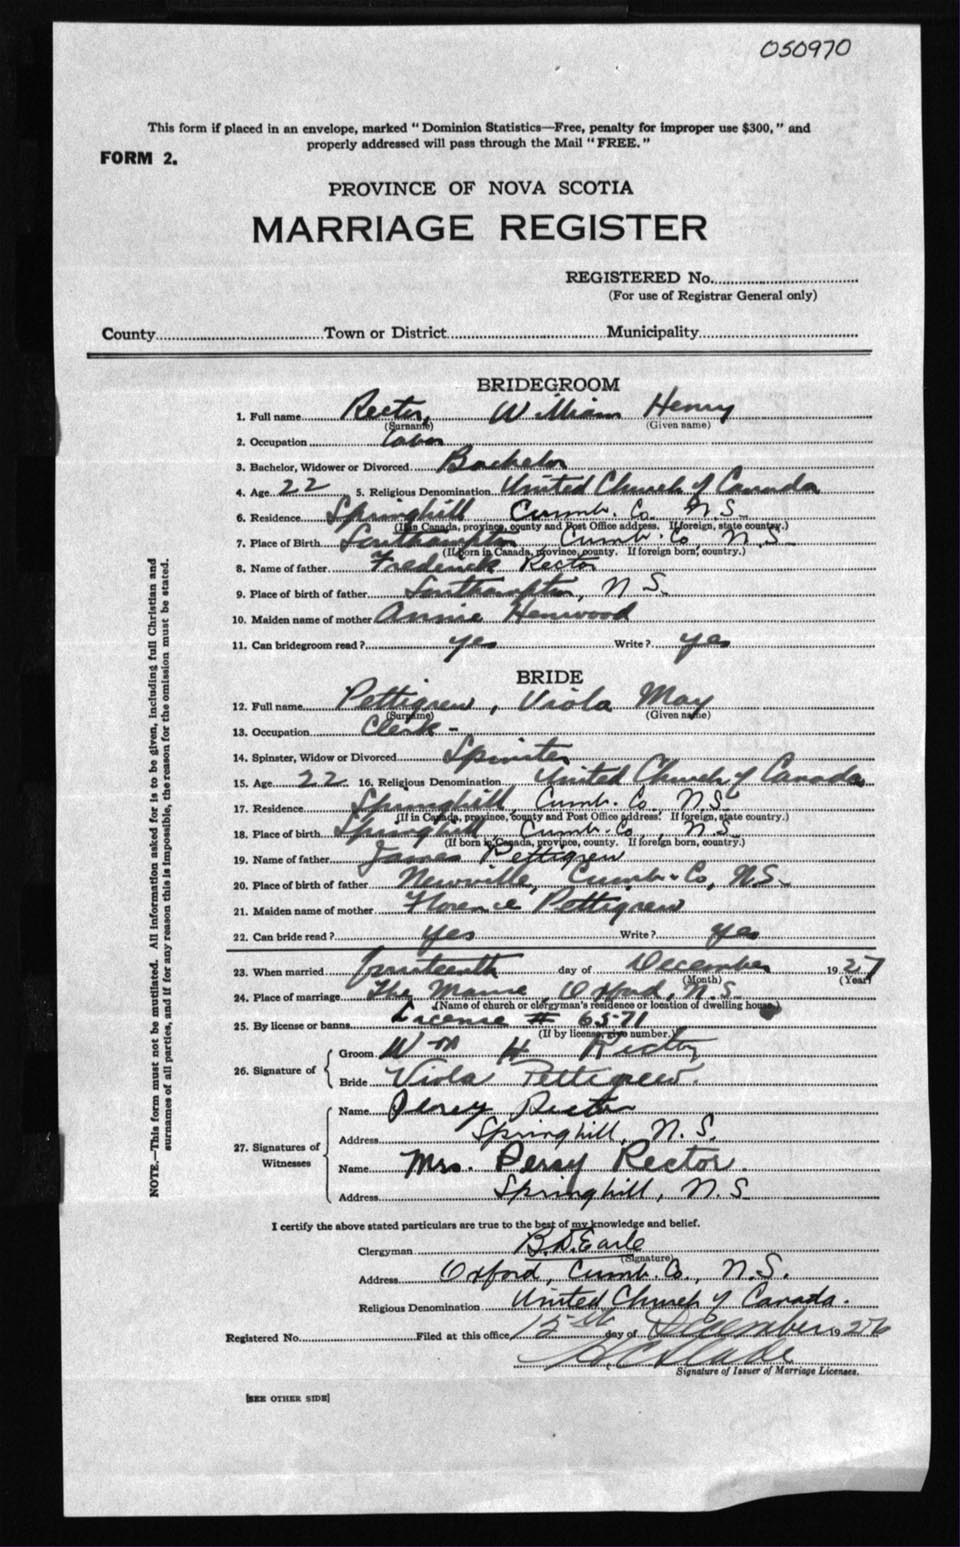 050970
This form if placed in an envelope, marked "Dominion Statistics—Free, penalty for improper use $300," and
properly addressed will pass through the Mail "FREE."
FORM 2.
PROVINCE OF NOVA SCOTIA
MARRIAGE REGISTER
REGISTERED No.
(For use of Registrar General only)
County Town or District Municipality
BRIDEGROOM
1. Full name Rector, William Henry
(Surname) (Given name)
2. Occupation Labor
3. Bachelor, Widower or Divorced Bachelor
4. Age 22 5. Religious Denomination United Church of Canada
6. Residence Springhill Cumb. Co. N.S.
(If in Canada, province, county and Post Office address. If foreign, state country.)
7. Place of Birth Southampton Cumb. Co N.S.
(If born in Canada, province, county. If foreign born, country.)
8. Name of father Frederick Rector
9. Place of birth of father Southampton, N.S.
10. Maiden name of mother Annie Henwood
11. Can bridegroom read? yes Write? yes
BRIDE
12. Full name Pettigrew, Viola May
(Surname) (Given name)
13. Occupation Clerk -
14. Spinster, Widow or Divorced Spinster
15. Age 22 16. Religious Denomination United Church of Canada
17. Residence Springhill, Cumb. Co, N.S.
(If in Canada, province, county and Post Office address. If foreign, state country.)
18. Place of birth Springhill, Cumb. Co, N.S.
(If born in Canada, province, county. If foreign born, country.)
19. Name of father James Pettigrew
20. Place of birth of father Newville, Cumb. Co, N.S.
21. Maiden name of mother Florence Pettigrew
22. Can bride read? yes Write? yes
23. When married fourteenth day of December 1927
(Month) (Year)
24. Place of marriage The Manse, Oxford, N.S.
(Name of church or clergyman's residence or location of dwelling house)
25. By license or banns License # 6571
(If by license, give number.)
26. Signature of
Groom Wm H Rector
Bride Viola Pettigrew.
27. Signatures of Witnesses
Name Percy Rector
Address Springhill, N.S.
Name Mrs. Percy Rector.
Address Springhill, N.S.
I certify the above stated particulars are true to the best of my knowledge and belief.
Clergyman B.D. Earle
(Signature)
Address Oxford, Cumb. Co., N.S.
Religious Denomination United Church of Canada.
Registered No. Filed at this office 15th day of December 19
Signature of Issuer of Marriage Licenses.
[SEE OTHER SIDE]
NOTE.—This form must not be mutilated. All information asked for is to be given, including full Christian and
surnames of all parties, and if for any reason this is impossible, the reason for the omission must be stated.